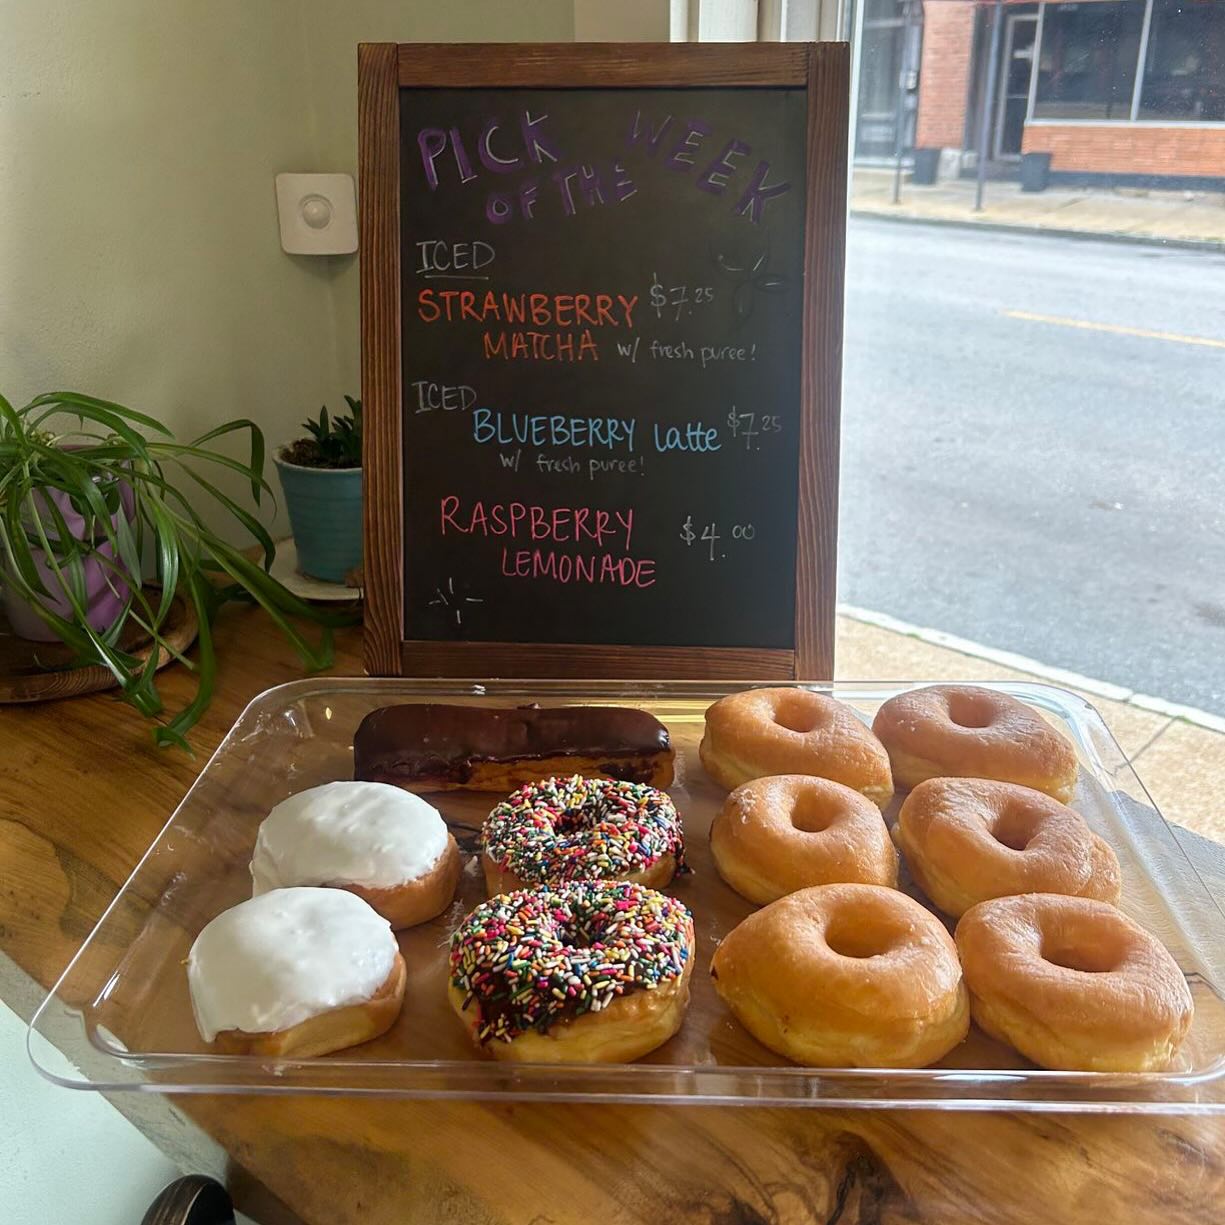 PICK OF THE WEEK
ICED
STRAWBERRY $7.25
MATCHA w/ fresh puree!
ICED
BLUEBERRY latte $7.25
w/ fresh puree!
RASPBERRY $4.00
LEMONADE